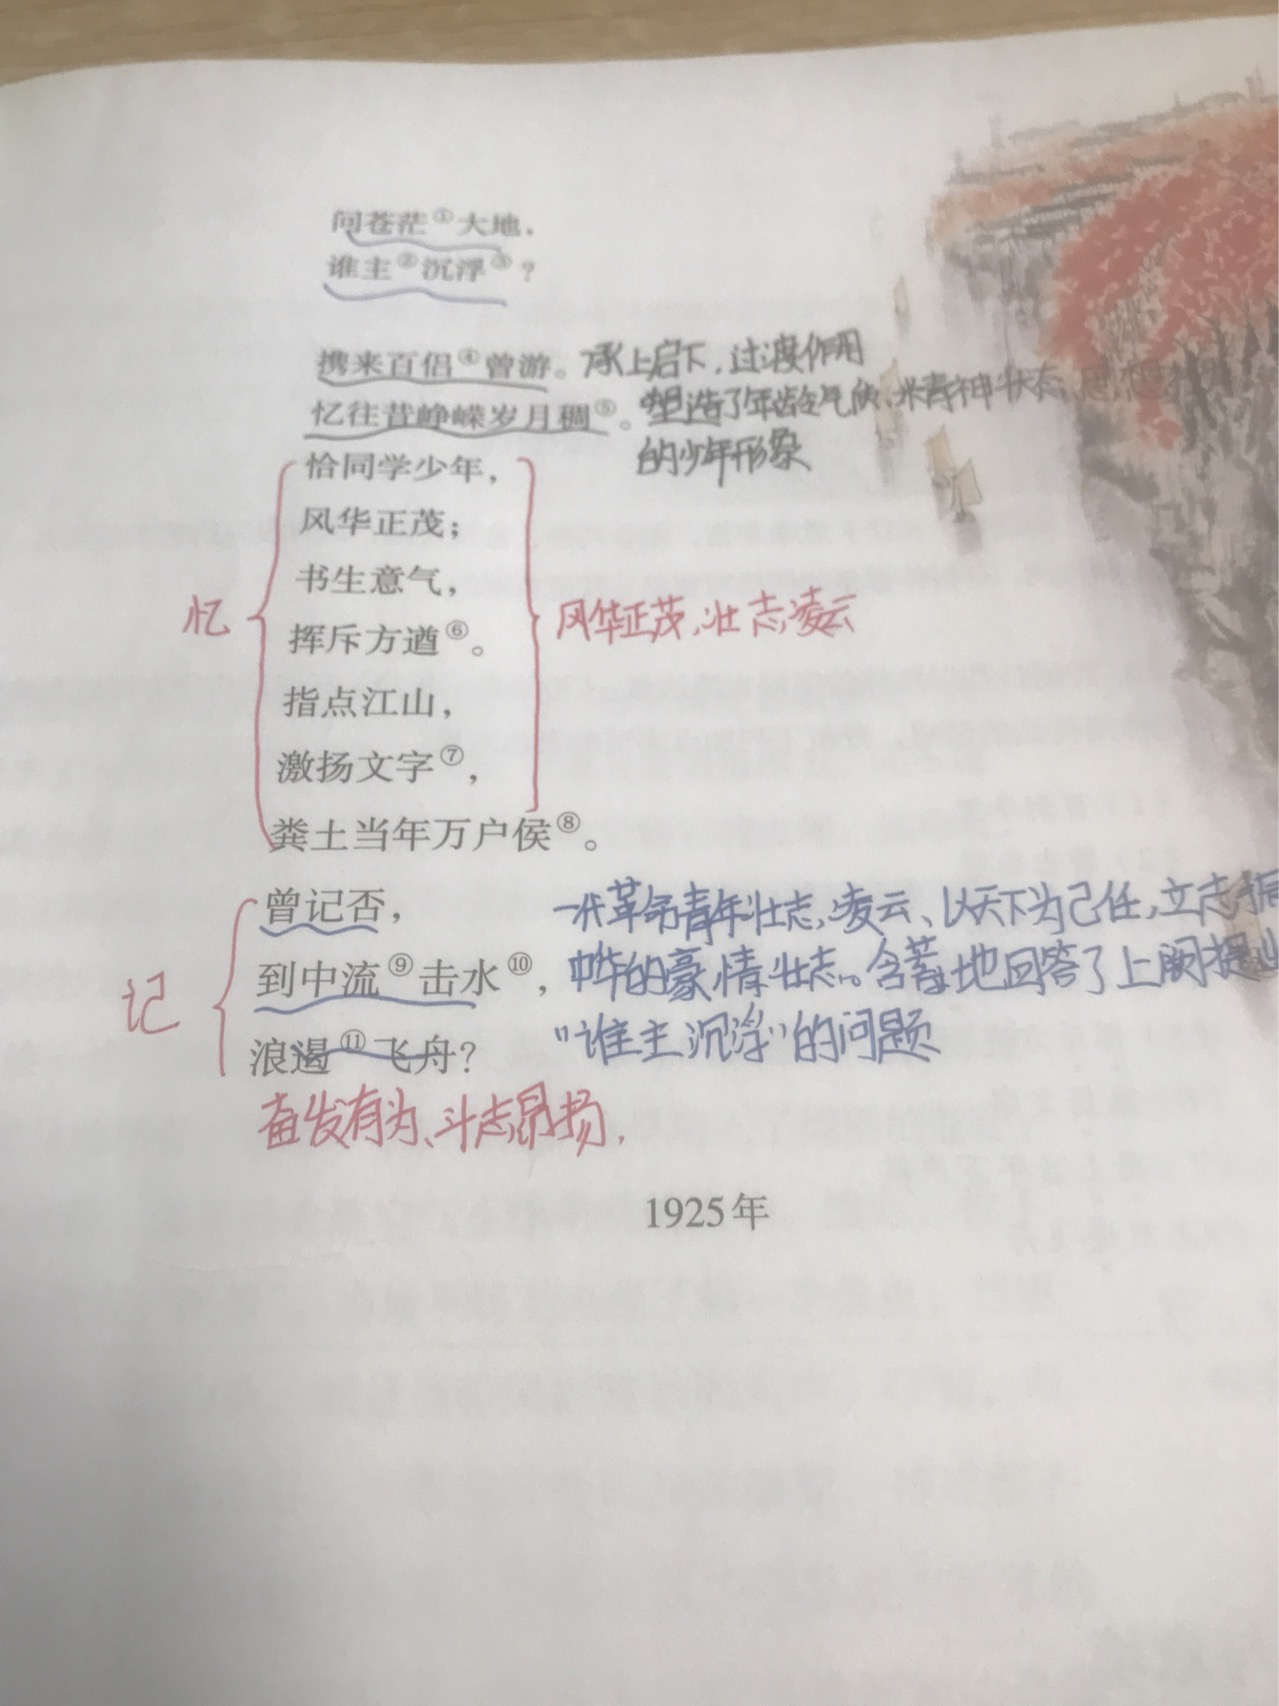 问苍茫①大地，
谁主②沉浮③？
携来百侣④曾游。承上启下，过渡作用
忆往昔峥嵘岁月稠⑤。塑造了年龄、气质、精神状态、思想
的少年形象
恰同学少年，
风华正茂；
书生意气，
忆
挥斥方遒⑥。
风华正茂，壮志凌云
指点江山，
激扬文字⑦，
粪土当年万户侯⑧。
曾记否，
一代革命青年壮志凌云、以天下为己任，立志振
记
到中流⑨击水⑩，
中华的豪情壮志。含蓄地回答了上阕提出
浪遏⑪飞舟？
"谁主沉浮"的问题
奋发有为、斗志昂扬，
1925年